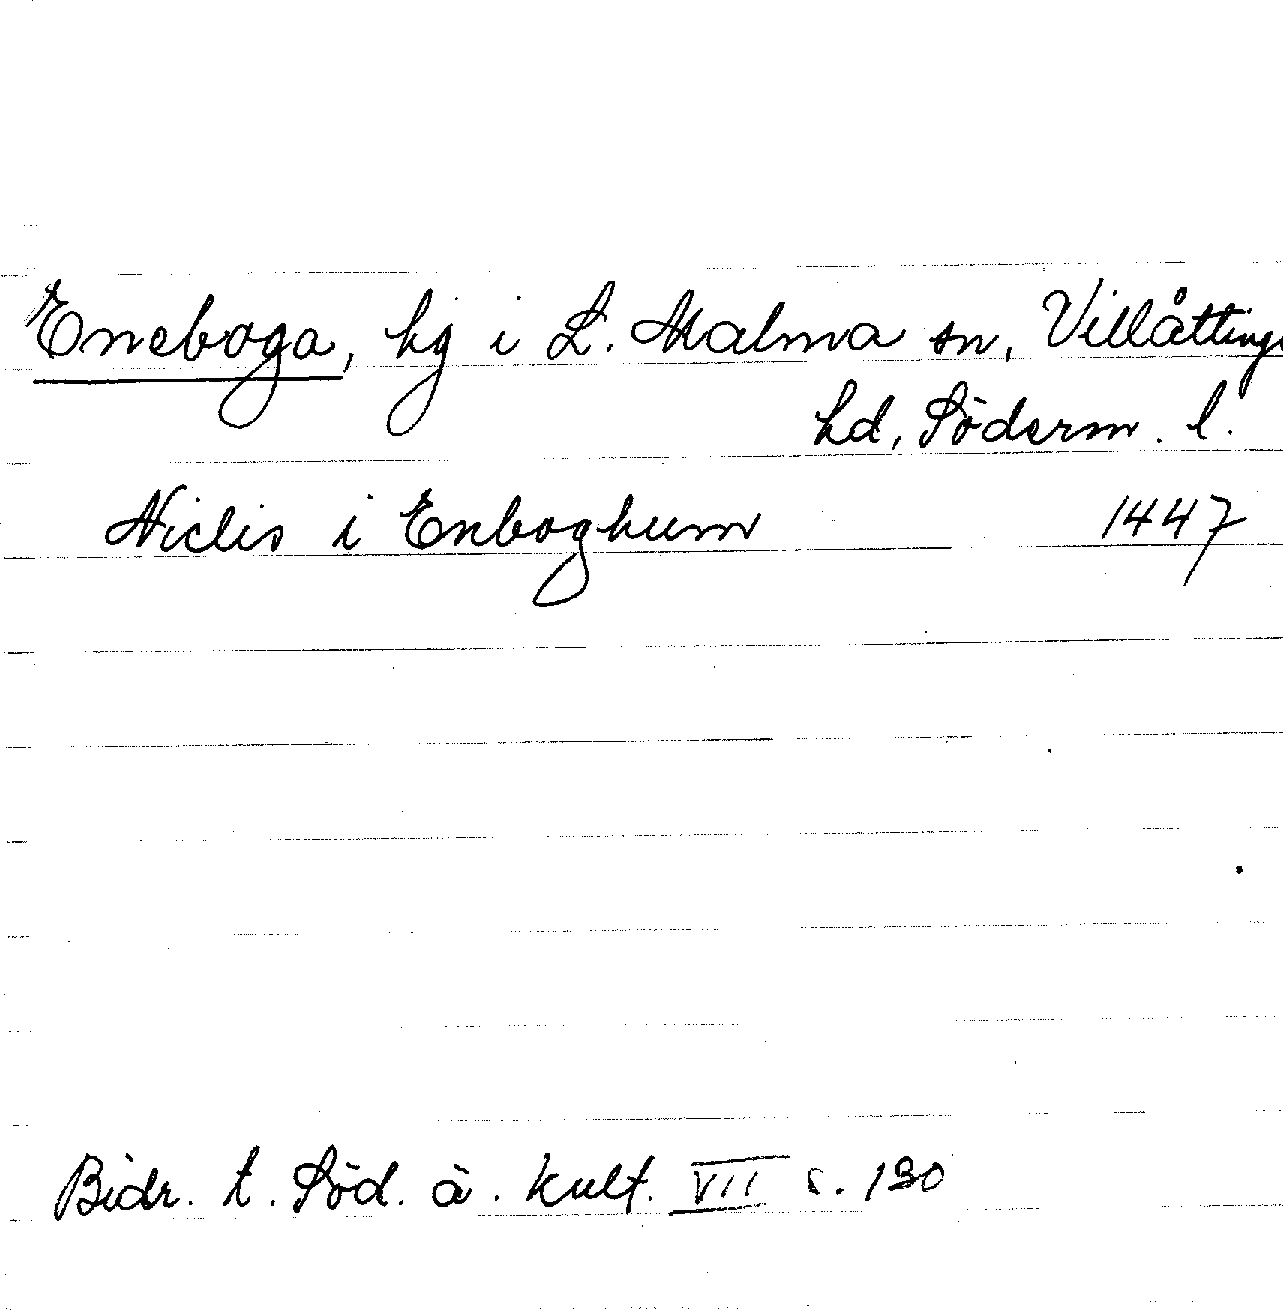 Eneboga, hg i L. Malma sn, Villåttinge
hd, Söderm. l.
Niclis i Enboghum 1447
Bidr. t. Söd. ä. kult. VII s. 130